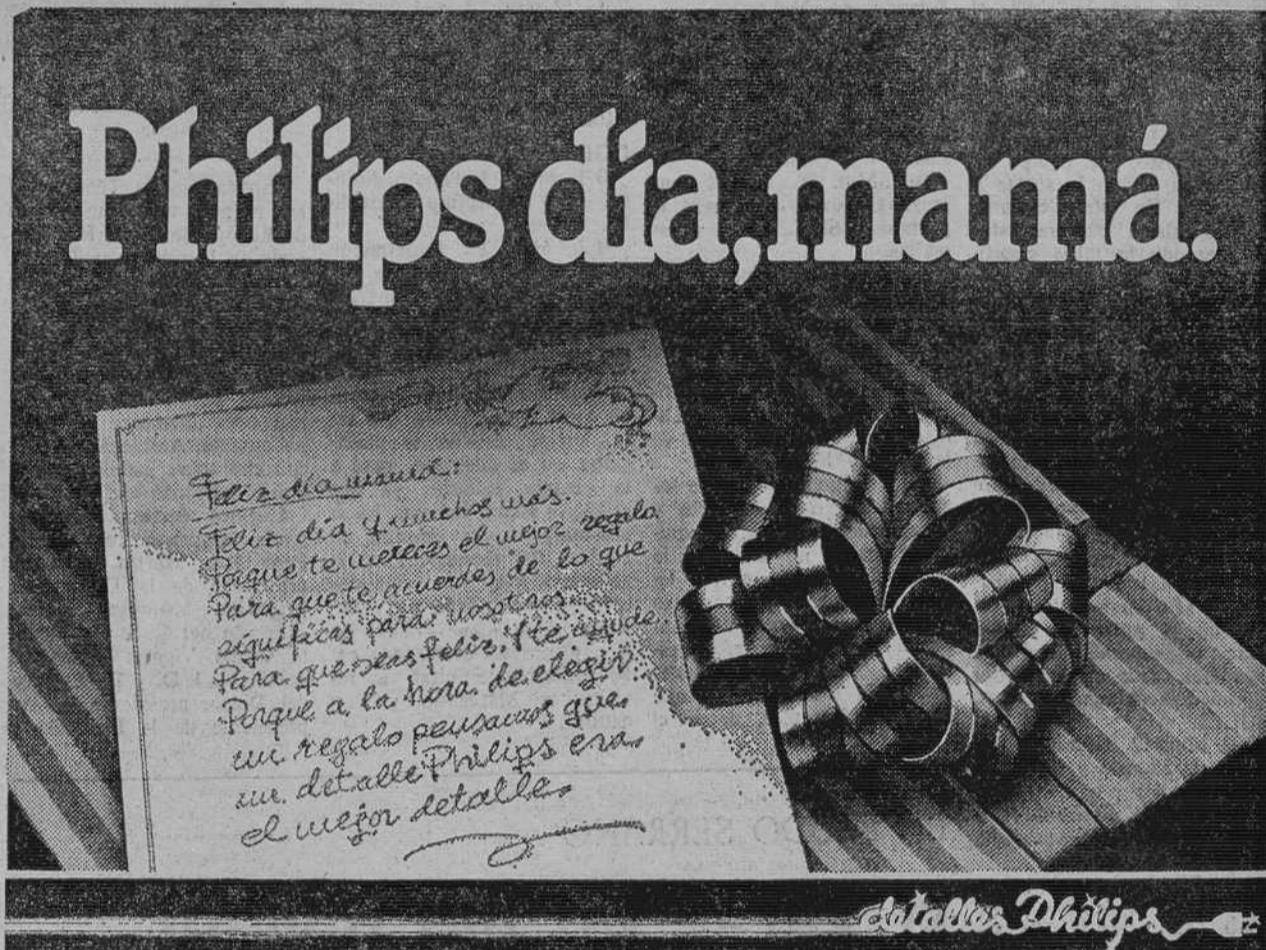 Philips dia, mamá.
Feliz día mamá:
Feliz día y muchos más.
Porque te mereces el mejor regalo
Para que te acuerdes de lo que
significas para nosotros.
Para que seas feliz. Y te ayude.
Porque a la hora de elegir
un regalo pensamos que
un detalle Philips era
el mejor detalle.
detalles Philips